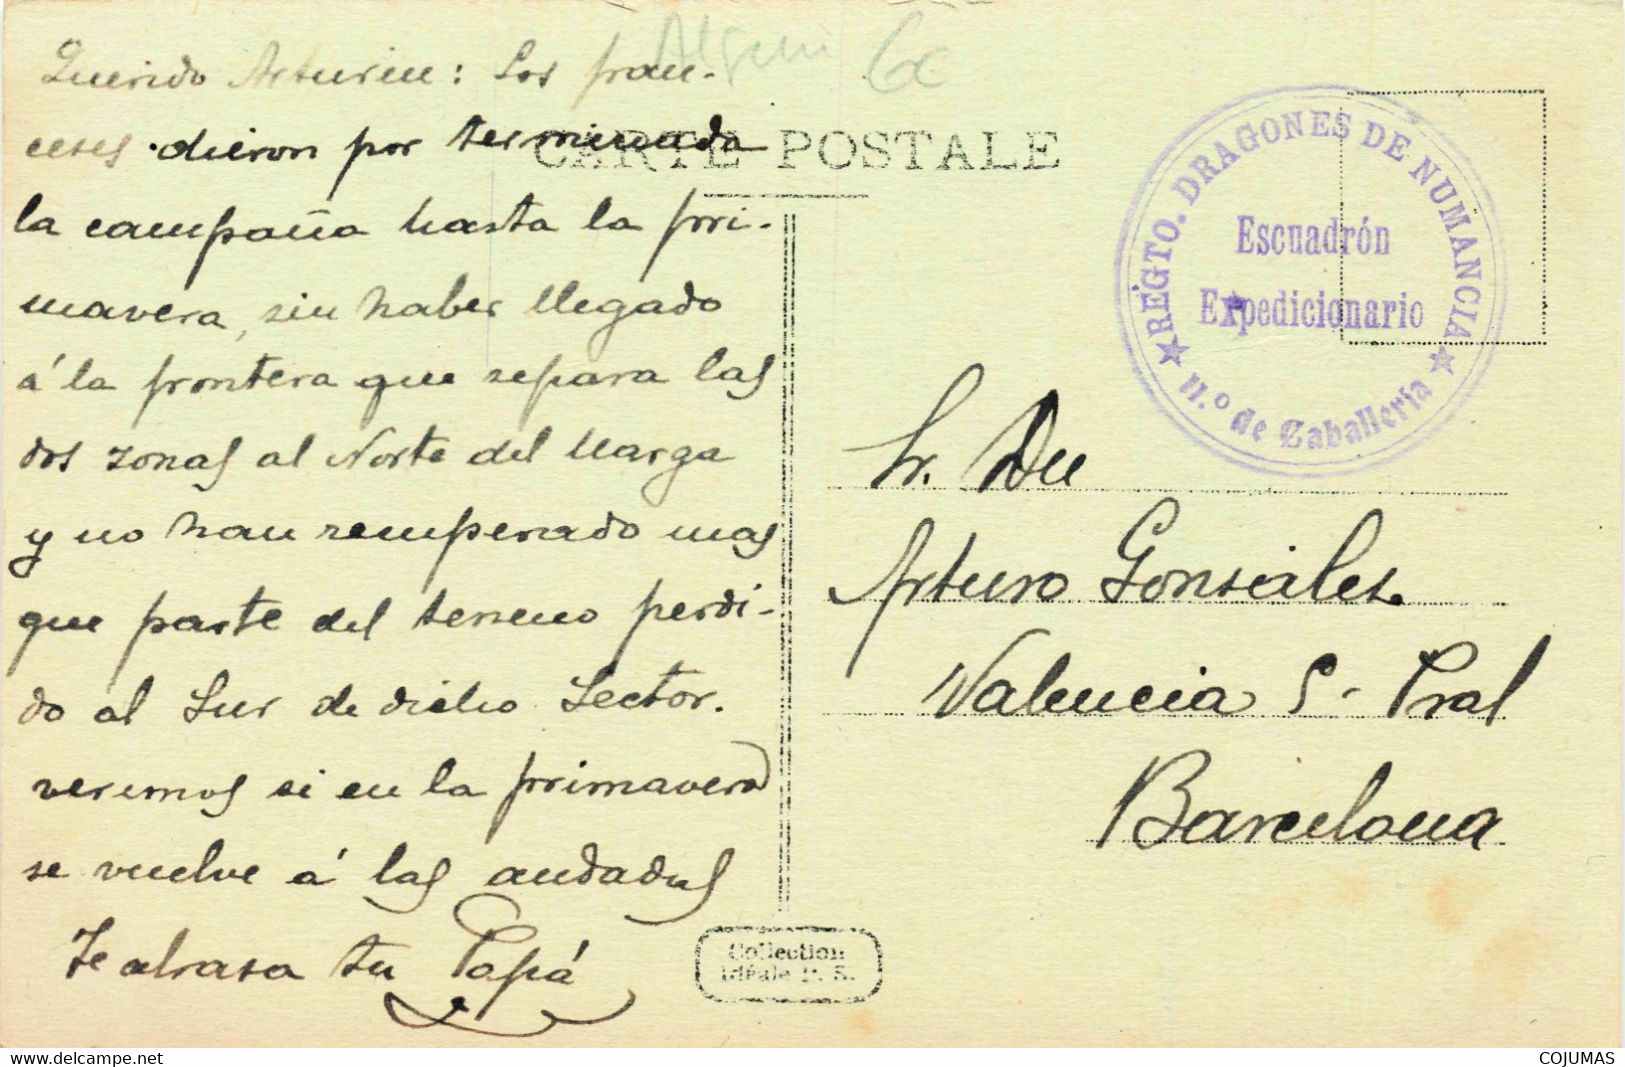 Querido Arturin: Los fran-
ceses dieron por terminada
la campaña hasta la pri-
mavera, sin haber llegado
á la frontera que separa las
dos zonas al Norte del Uarga
y no han recuperado mas
que parte del terreno perdi-
do al Sur de dicho Sector.
veremos si en la primavera
se vuelve á las andadas
Te abraza tu Papá
6€
CARTE POSTALE
REGTO. DRAGONES DE NUMANCIA
Escuadrón
Expedicionario
11.º de Caballería
Sr. Dn
Arturo Gonzalez
Valencia 5- Pral
Barcelona
Collection
Idéale P. S.
www.delcampe.net
COJUMAS